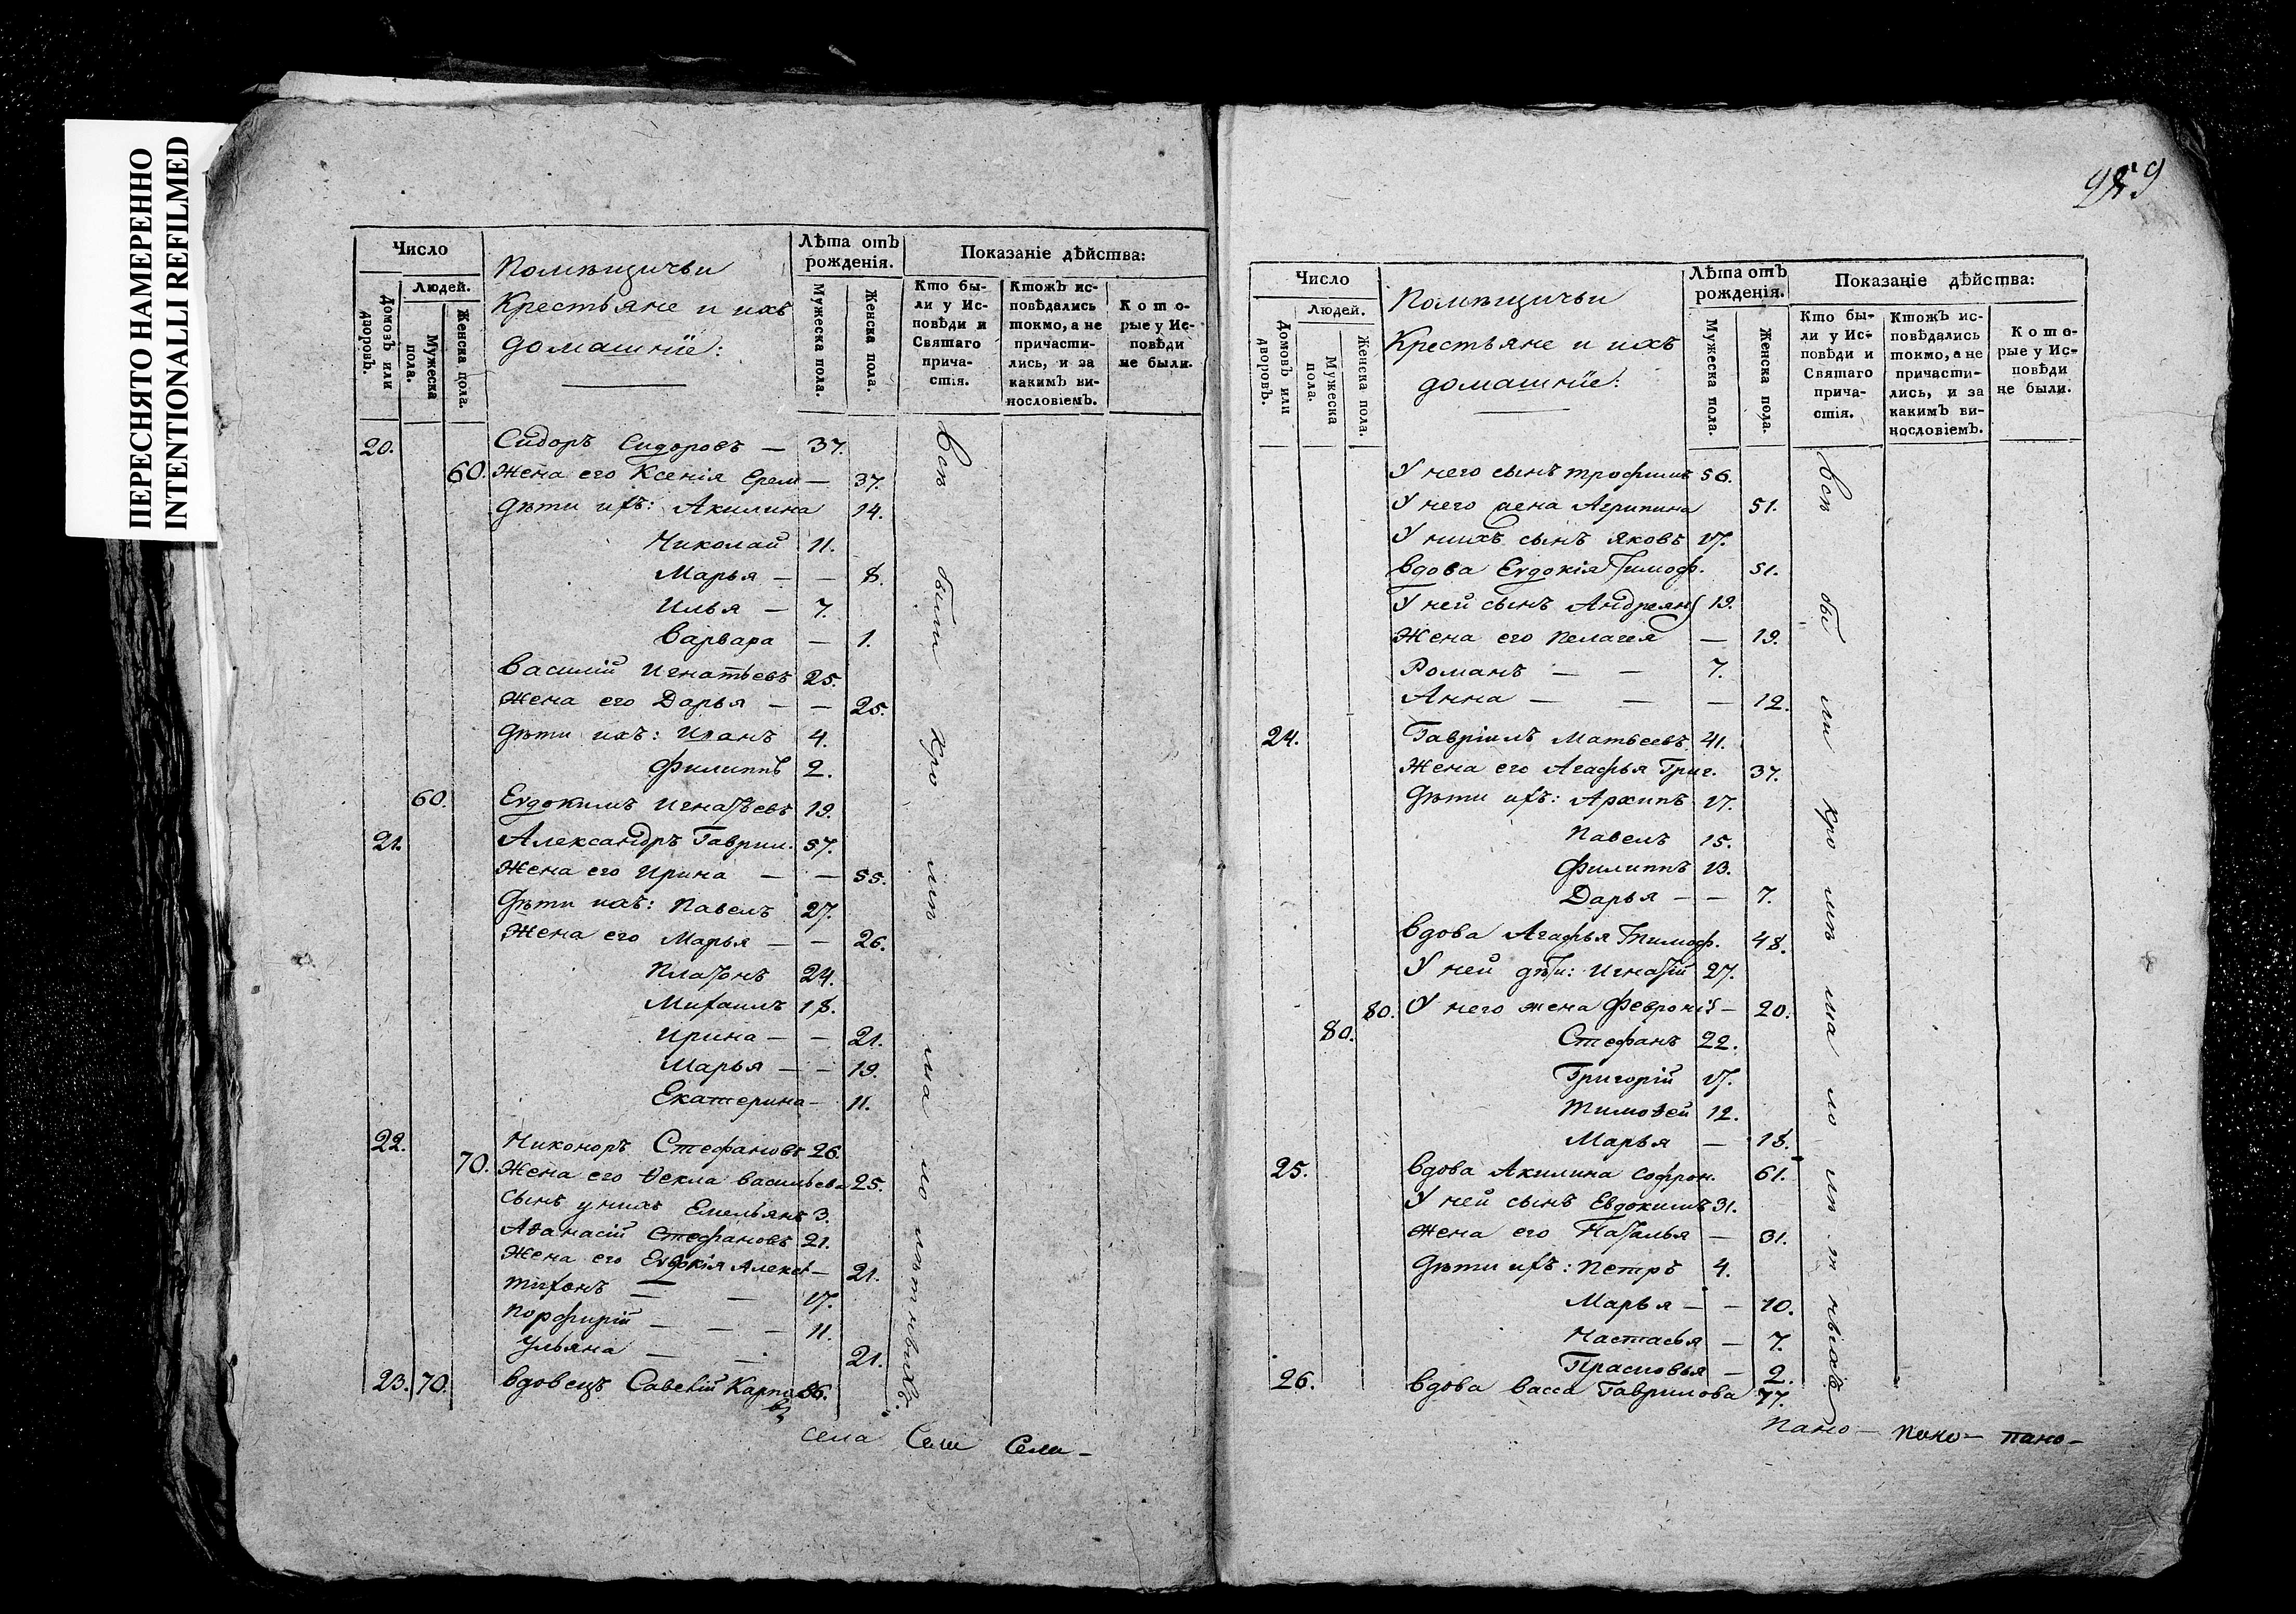 ПЕРЕСНЯТО НАМЕРЕННО
INTENTIONALLI REFILMED
Число
Людей.
Домовъ или дворовъ.
Мужеска пола.
Женска пола.
Помѣщичьи
Крестьяне и ихъ
домашнїе:
Лѣта отъ рожденія.
Мужеска пола.
Женска пола.
Показаніе дѣйства:
Кто были у Исповѣди и Святаго причастія.
Ктожъ исповѣдались токмо, а не причастились, и за какимъ винословіемъ.
Которые у Исповѣди не были.
20. Сидоръ Сидоровъ — 37.
60. Жена его Ксенія Ерем — 37.
Дѣти ихъ: Акилина 14.
Николай 11.
Марья — — 8.
Илья — 7.
Варвара — 1.
Василій Игнатьевъ 25.
Жена его Дарья — — 25.
Дѣти ихъ: Иванъ 4.
Филиппъ 2.
60. Евдокимъ Игнатьевъ 19.
21. Александръ Гаврил. 57.
Жена его Ирина — — 55.
Дѣти ихъ: Павелъ 27.
Жена его Марья — — 26.
Платонъ 24.
Михаилъ 18.
Ирина — — 21.
Марья — — 19.
Екатерина — 11.
22. Никоноръ Стефановъ 26.
70. Жена его Ѳекла Васильева 25.
Сынъ у нихъ Емельянъ 3.
Аѳанасій Стефановъ 21.
Жена его Евдокія Алексе — 21.
Тихонъ — — 17.
Порфирій — — — 11.
Ульяна — — 21.
23. 70. Вдовецъ Савелій Карповъ 86.
всѣ были кромѣ малолѣтныхъ.
села Сели Сели —
959
Число
Людей.
Домовъ или дворовъ.
Мужеска пола.
Женска пола.
Помѣщичьи
Крестьяне и ихъ
домашнїе:
Лѣта отъ рожденія.
Мужеска пола.
Женска пола.
Показаніе дѣйства:
Кто были у Исповѣди и Святаго причастія.
Ктожъ исповѣдались токмо, а не причастились, и за какимъ винословіемъ.
Которые у Исповѣди не были.
У него сынъ Трофимъ 56.
У него жена Агрипина 51.
У нихъ сынъ Яковъ 17.
Вдова Евдокія Тимоф. 51.
У ней сынъ Андреянъ 19.
Жена его Пелагея — 19.
Романъ — — 7.
Анна — — — 12.
24. Гавріилъ Матвеевъ 41.
Жена его Агафья Григ. 37.
Дѣти ихъ: Архипъ 17.
Павелъ 15.
Филиппъ 13.
Дарья — — 7.
Вдова Агафья Тимоф. 48.
У ней дѣти: Игнатій 27.
80. У него жена Февронія — 20.
80. Стефанъ 22.
Григорій 17.
Тимоѳей 12.
Марья — 18.
25. Вдова Акилина Софрон. 61.
У ней сынъ Евдокимъ 31.
Жена его Наталья — 31.
Дѣти ихъ: Петръ 4.
Марья — — 10.
Настасья — 7.
Прасковья — 2.
26. Вдова Васса Гаврилова 77.
всѣ были кромѣ малолѣтныхъ
Пано — пано — пано —